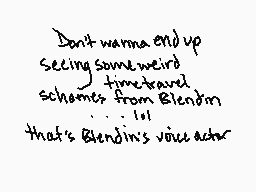 Don't wanna end up
seeing some weird
time travel
schames from Blendin
. . . lol
that's Blendin's voice actor